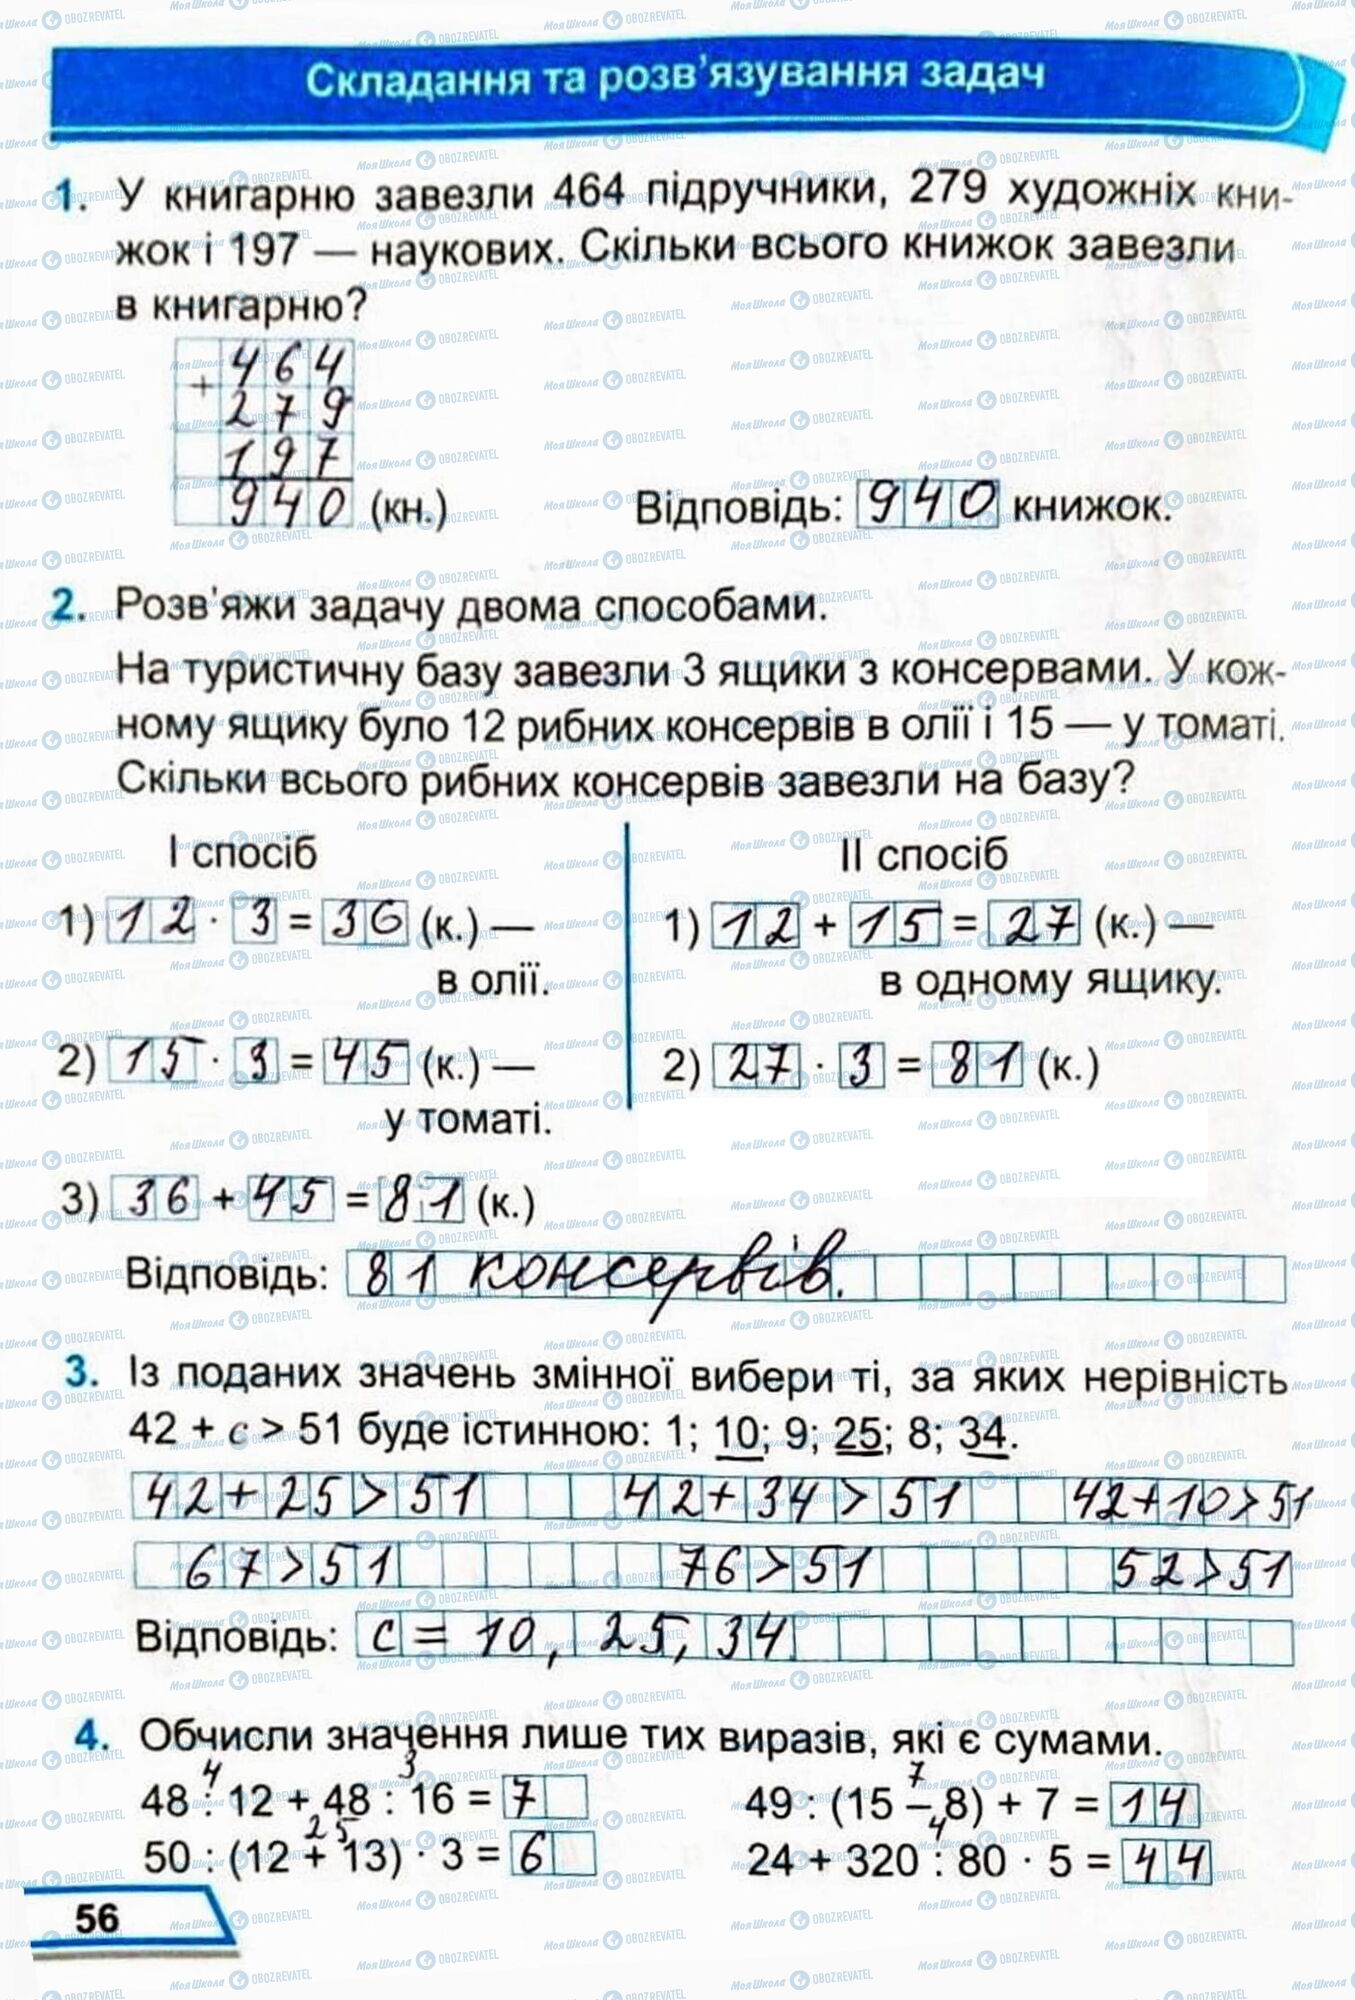 Складання та розв'язування задач
1. У книгарню завезли 464 підручники, 279 художніх кни-
жок і 197 — наукових. Скільки всього книжок завезли
в книгарню?
464
+
279
197
940 (кн.)
Відповідь: 940 книжок.
2. Розв'яжи задачу двома способами.
На туристичну базу завезли 3 ящики з консервами. У кож-
ному ящику було 12 рибних консервів в олії і 15 — у томаті.
Скільки всього рибних консервів завезли на базу?
І спосіб
1) 12 · 3 = 36 (к.) —
в олії.
2) 15 · 3 = 45 (к.) —
у томаті.
3) 36 + 45 = 81 (к.)
ІІ спосіб
1) 12 + 15 = 27 (к.) —
в одному ящику.
2) 27 · 3 = 81 (к.)
Відповідь: 81 консервів.
3. Із поданих значень змінної вибери ті, за яких нерівність
42 + с > 51 буде істинною: 1; 10; 9; 25; 8; 34.
42+25>51 42+34>51 42+10>51
67>51 76>51 52>51
Відповідь: с = 10, 25, 34
4. Обчисли значення лише тих виразів, які є сумами.
4 3
48 : 12 + 48 : 16 = 7
25
50 : (12 + 13) · 3 = 6
7
49 : (15 – 8) + 7 = 14
4
24 + 320 : 80 · 5 = 44
56
МояШкола OBOZREVATEL